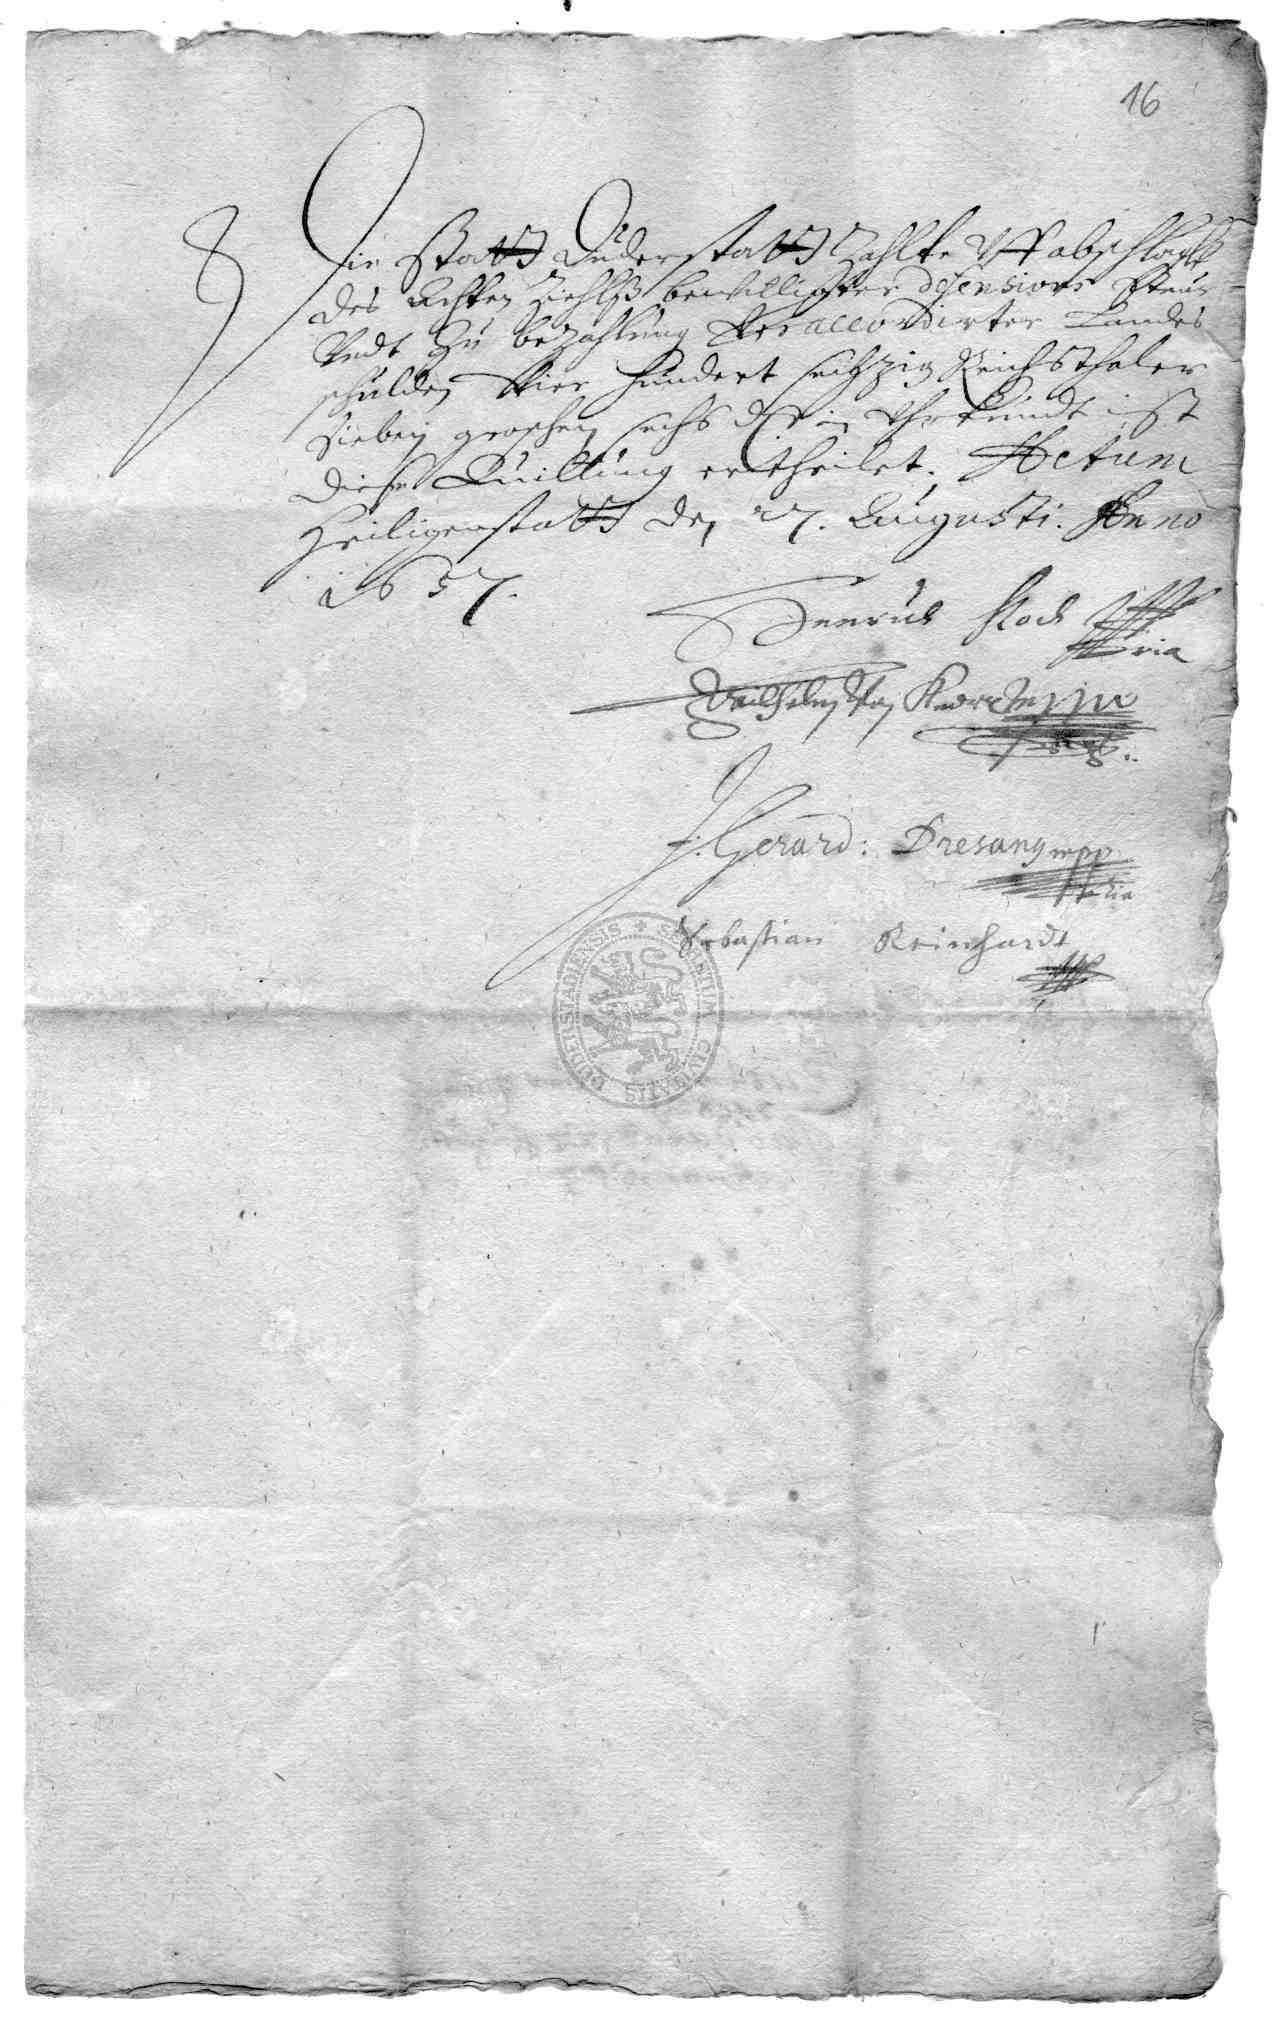 16
Die Stadt Duderstadt zahlte Uff abschlag
des Achten Ziehlß bewilligter Defensions Steur
Undt Zu bezahlung Veraccordirter Landes
schulden Vier hundert sechzig Reichsthaler
sieben groschen sechs in Uhrkundt ist
diese Quittung ertheilet. Actum
Heiligenstadt den 27. Augusti. Anno
1657.
Henrich Stock
Wilhelm von mpp
J. Gerard: Dresang mpp
Sebastian Reinhardt
SECRETUM CIVITATIS DUDERSTADIENSIS